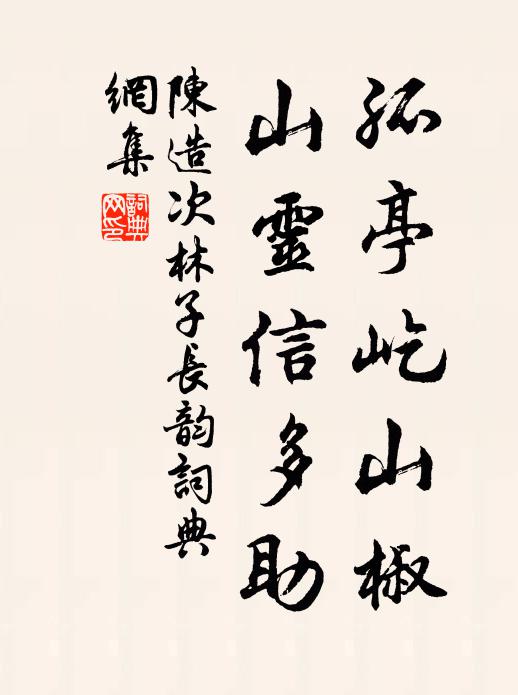 孤亭屹山椒
山靈信多助
陳造次林子長韵詞典
網集
詞典
网印